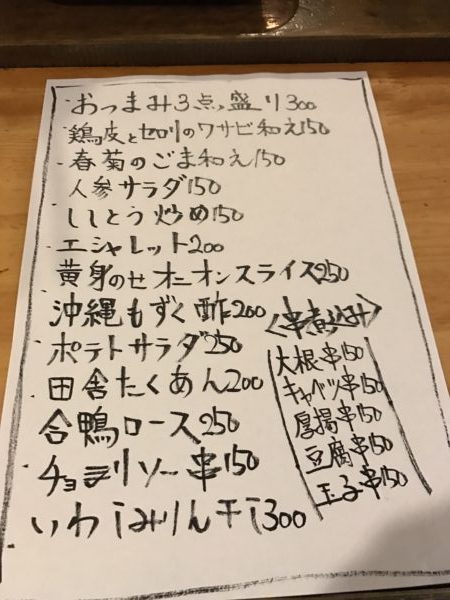 おつまみ3点盛り300
鶏皮とセロリのワサビ和え150
春菊のごま和え150
人参サラダ150
ししとう炒め150
エシャレット200
黄身のせオニオンスライス250
沖縄もずく酢200
ポテトサラダ250
田舎たくあん200
合鴨ロース250
チョリソー串150
いわしみりん干し300
〈串煮込み〉
大根串150
キャベツ串150
厚揚串150
豆腐串150
玉子串150